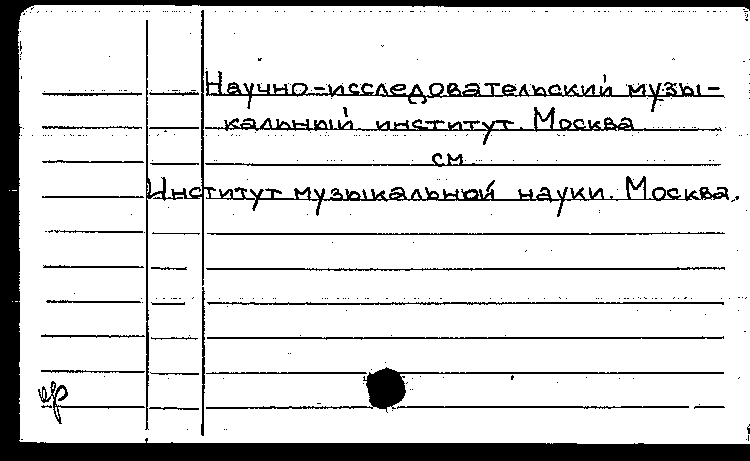 Научно-исследовательский музы-
кальный институт. Москва
см.
Институт музыкальной науки. Москва.